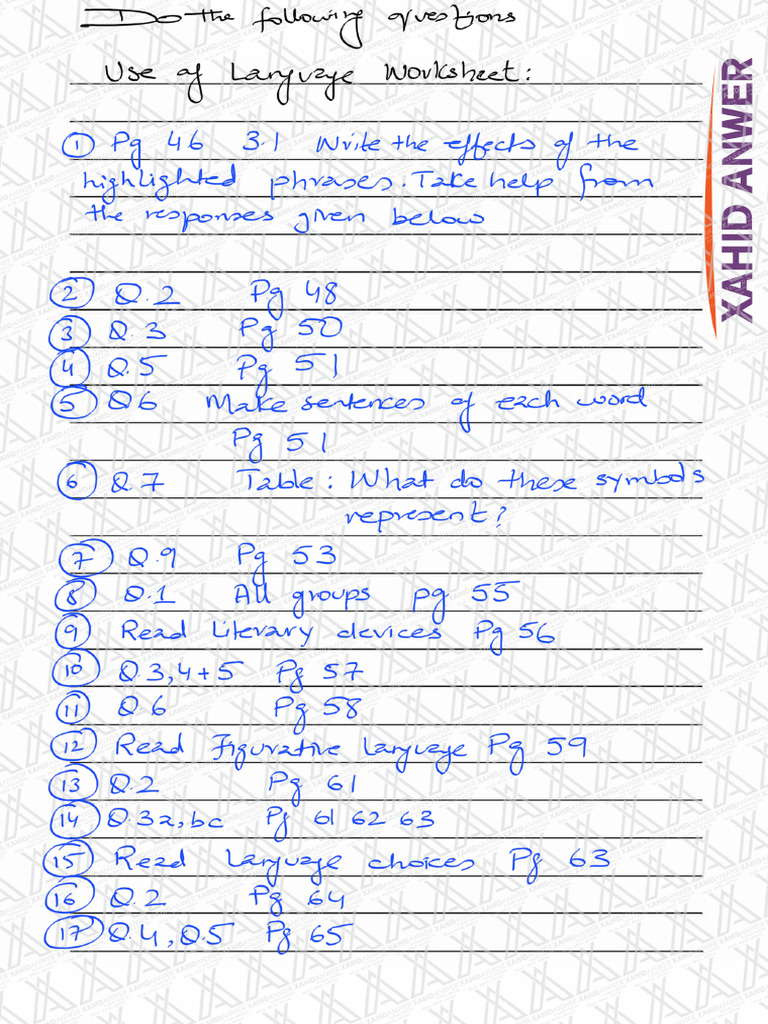 Do the following questions
Use of Language Worksheet:
① Pg 46 3.1 Write the effects of the
highlighted phrases. Take help from
the responses given below
② Q.2 Pg 48
③ Q.3 Pg 50
④ Q.5 Pg 51
⑤ Q6 Make sentences of each word
Pg 51
⑥ Q.7 Table: What do these symbols
represent?
⑦ Q.9 Pg 53
⑧ Q.1 All groups pg 55
⑨ Read Literary devices Pg 56
⑩ Q.3,4+5 Pg 57
⑪ Q.6 Pg 58
⑫ Read Figurative Language Pg 59
⑬ Q.2 Pg 61
⑭ Q.3a,bc Pg 61 62 63
⑮ Read Language choices Pg 63
⑯ Q.2 Pg 64
⑰ Q.4, Q.5 Pg 65
XAHID ANWER